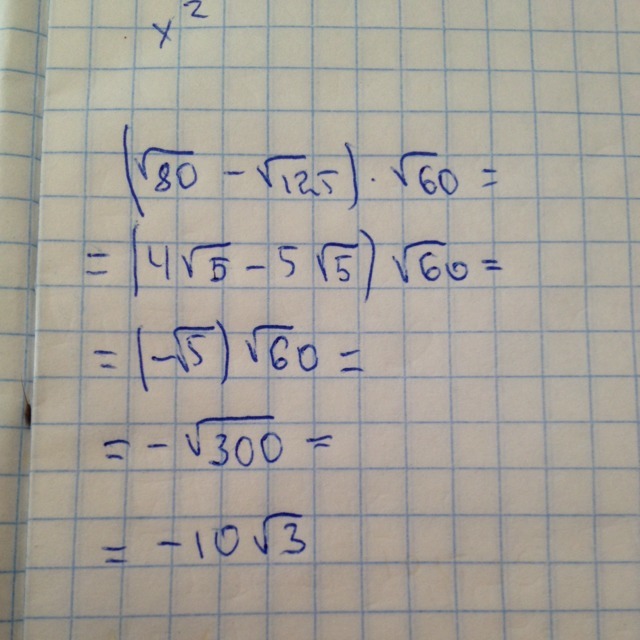 x²
(√80 - √125) · √60 =
= (4√5 - 5√5) √60 =
= (-√5) √60 =
= - √300 =
= - 10√3